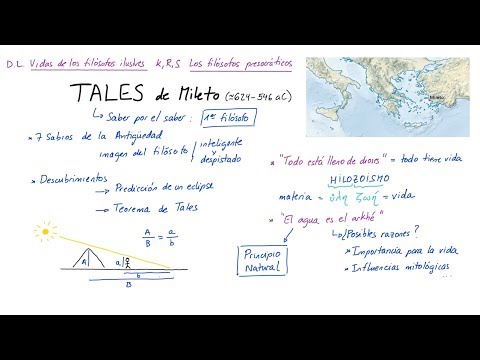 D.L. Vidas de los filósofos ilustres K,R,S Los filósofos presocráticos
TALES de Mileto (≈624-546 a.C)
Saber por el saber: 1er filósofo
* 7 Sabios de la Antigüedad
imagen del filósofo inteligente y despistado
* Descubrimientos
Predicción de un eclipse
Teorema de Tales
A/B = a/b
A
a
b
B
Mileto
* "Todo está lleno de dioses" = todo tiene vida
HILOZOISMO
materia = ὕλη ζωή = vida
* "El agua es el arkhé"
Principio Natural
¿Posibles razones?
* Importancia para la vida
* Influencias mitológicas
...